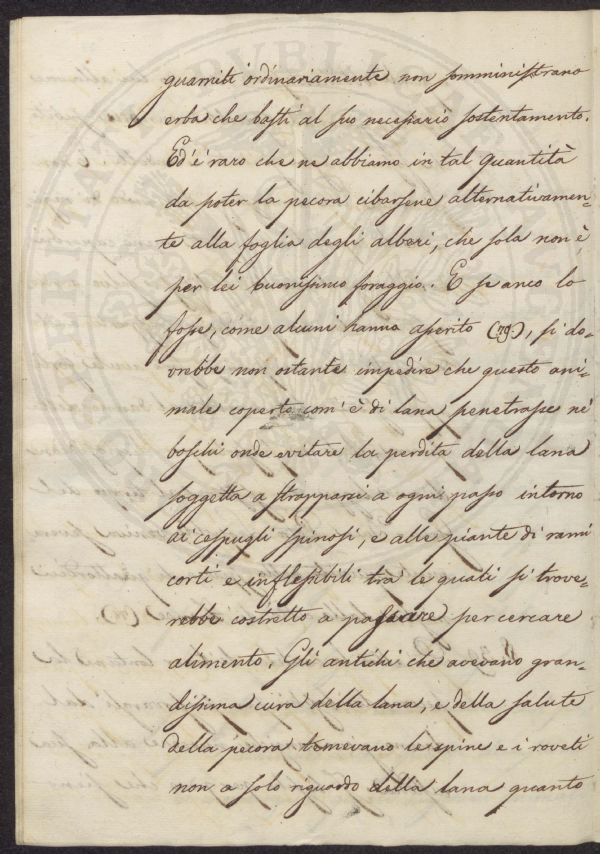 guarniti ordinariamente non somministrano
erba che basti al suo necessario sostentamento.
Ed' è raro che ne abbiamo in tal quantità
da poter la pecora cibarsene alternativamen-
te alla foglia degli alberi, che sola non è
per lei buonissimo foraggio. E se anco lo
fosse, come alcuni hanno asserito (79.), si do-
vrebbe non ostante impedire che questo ani-
male coperto com' è di lana penetrasse ne'
boschi onde evitare la perdita della lana
soggetta a strapparsi a ogni passo intorno
ai cespugli spinosi, e alle piante di rami
corti e inflessibili tra le quali si trove-
rebbe costretto a passare per cercare
alimento. Gli antichi che avevano gran-
dissima cura della lana, e della salute
della pecora temevano le spine e i roveti
non a solo riguardo della lana quanto